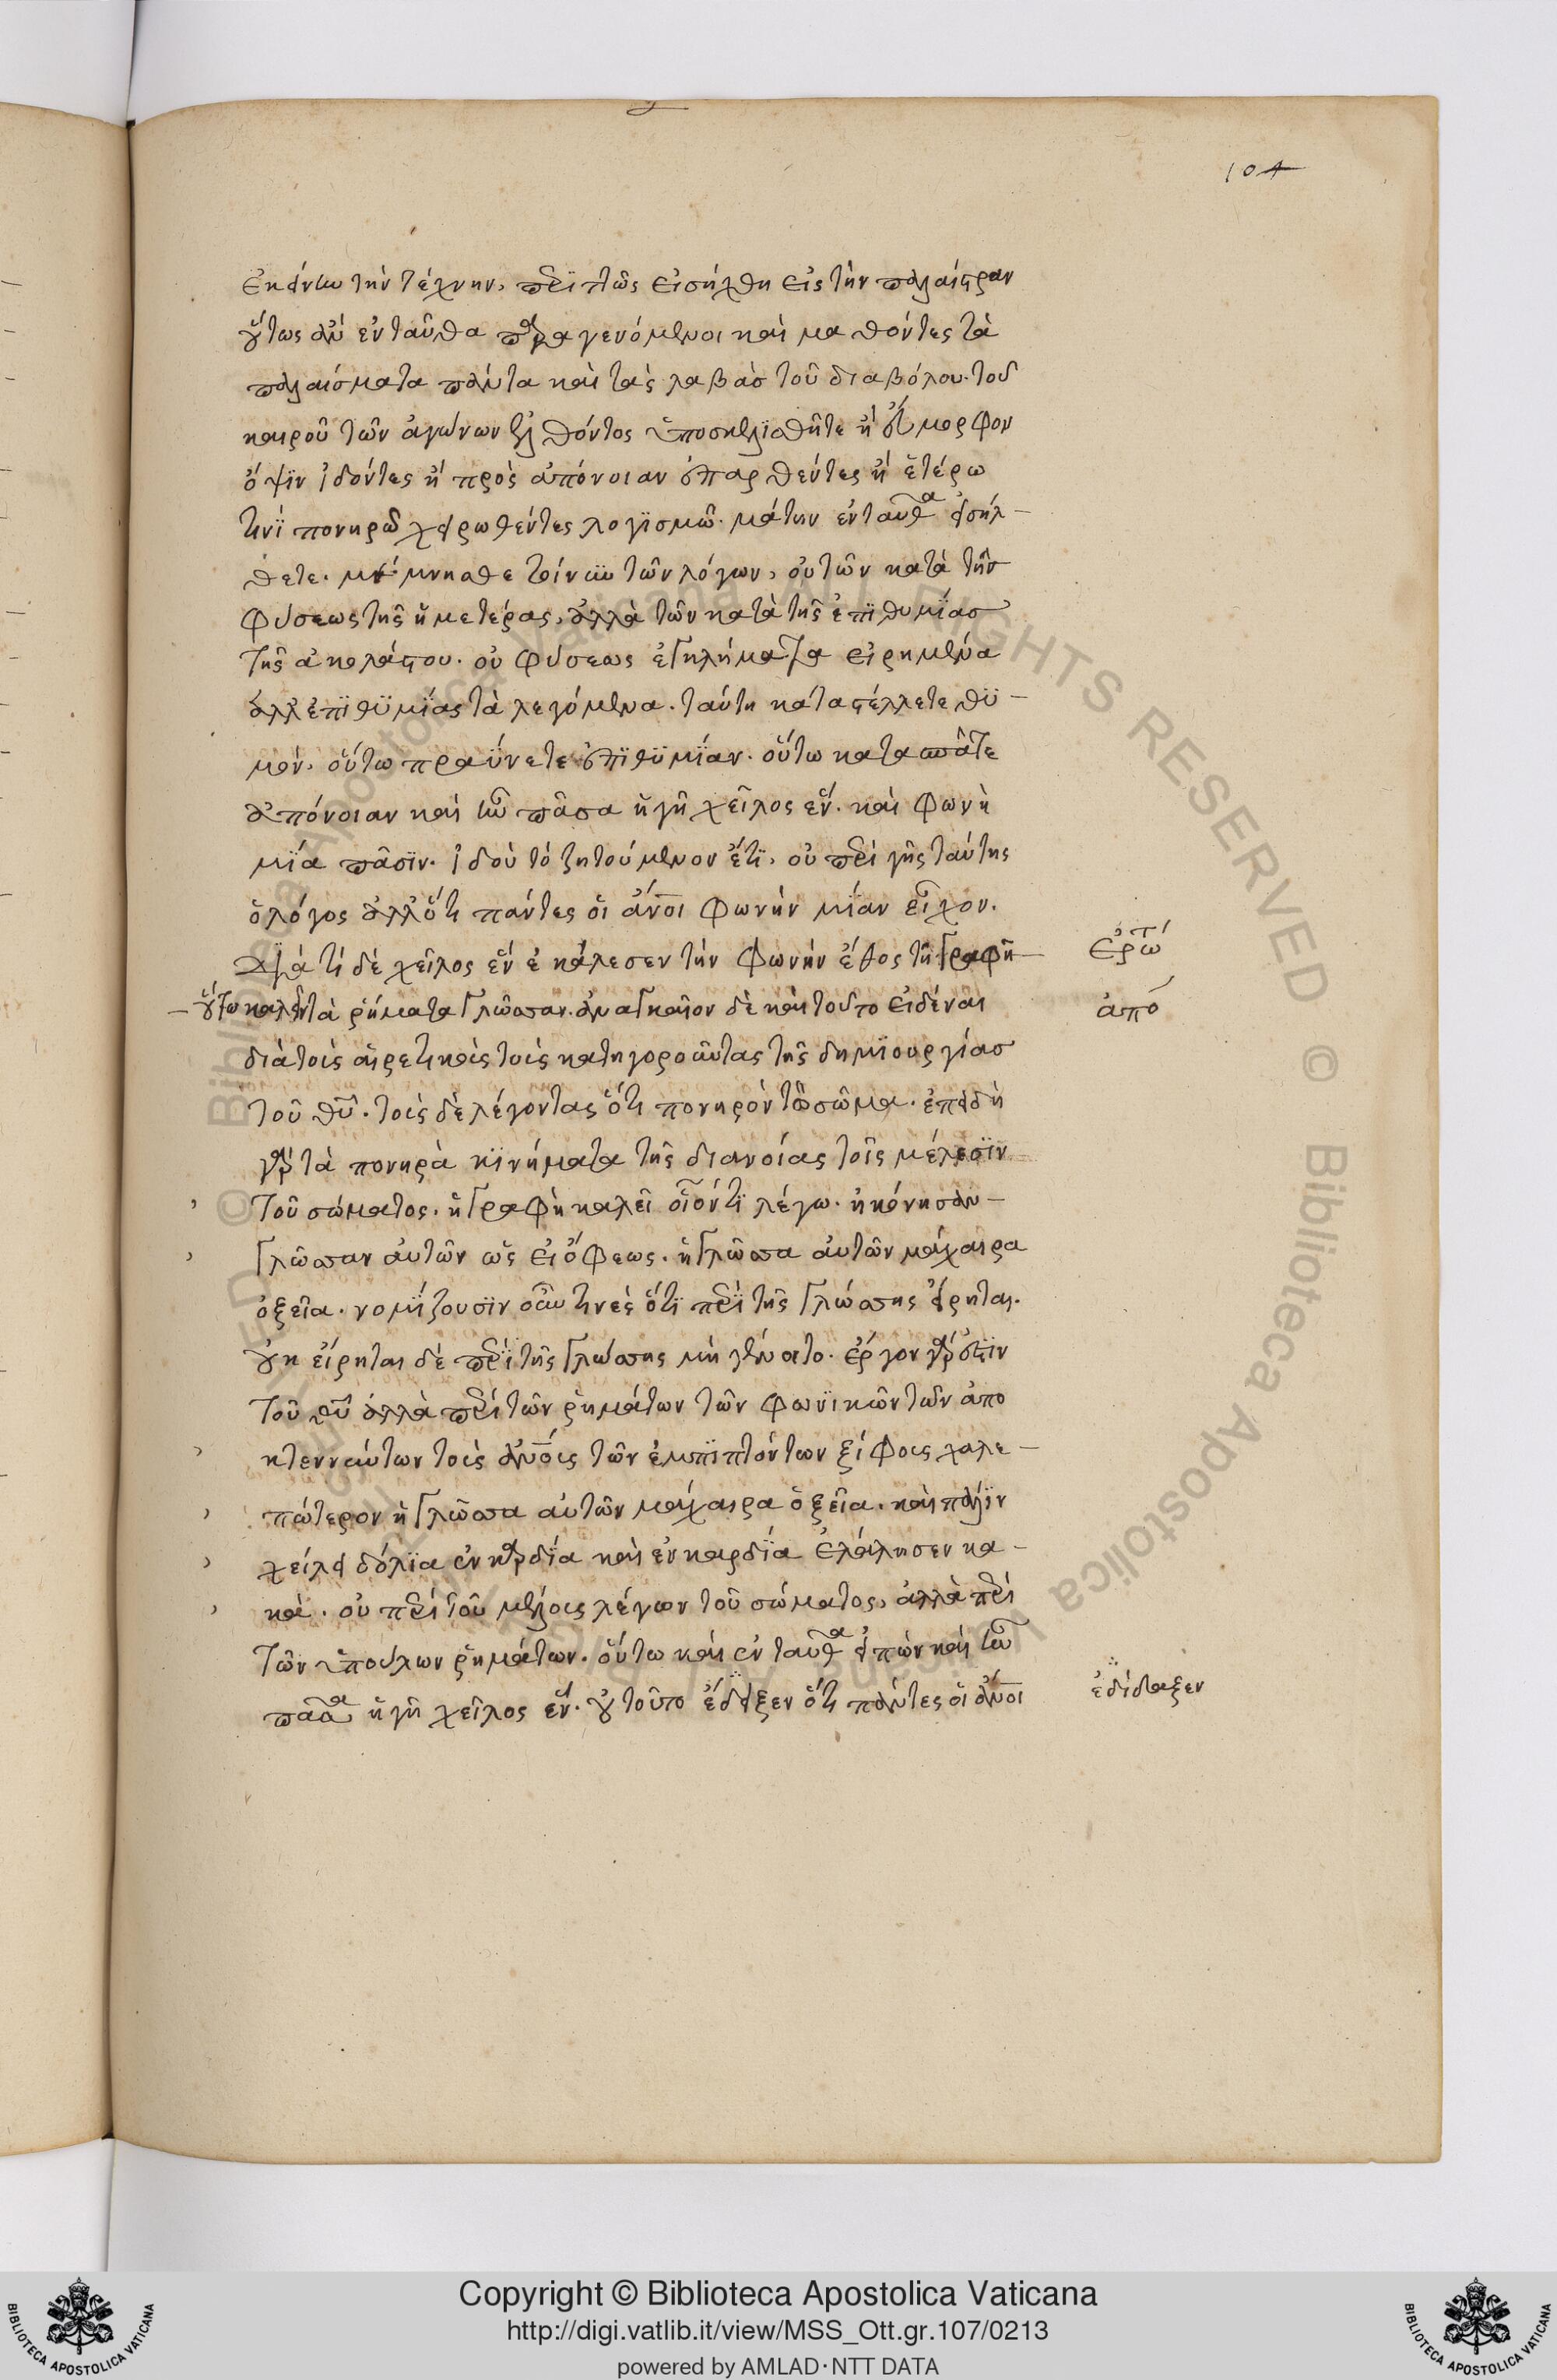 104
ἐκείνην τὴν τέχνην, περιττῶς εἰσήχθη εἰς τὴν παλαίστραν
οὕτως ἂν ἐνταῦθα παραγενόμενοι καὶ μαθόντες τὰ
παλαίσματα πάντα καὶ τὰς λαβὰς τοῦ διαβόλου. τοῦ
καιροῦ τῶν ἀγώνων ἐλθόντος ὑποσκελισθῆτε ἢ εὔμορφον
ὄψιν ἰδόντες ἢ πρὸς ἀπόνοιαν ἐπαρθέντες ἢ ἑτέρω
τινὶ πονηρῶ χειρωθέντες λογισμῶ. μάτην ἐνταῦθα εἰσήλ-
θετε. μέμνησθε τοίνυν τῶν λόγων, οὐ τῶν κατὰ τῆς
φύσεως τῆς ἡμετέρας, ἀλλὰ τῶν κατὰ τῆς ἐπιθυμίας
τῆς ἀκολάστου. οὐ φύσεως ἐγκλήματα εἰρημένα
ἀλλ' ἐπιθυμίας τὰ λεγόμενα. ταύτη καταστέλλετε θυ-
μόν. οὕτω πραΰνετε ἐπιθυμίαν. οὕτω καταπατεῖτε
ἀπόνοιαν καὶ ἦν πᾶσα ἡ γῆ χεῖλος ἕν. καὶ φωνὴ
μία πᾶσιν. ἰδοὺ τὸ ζητούμενον ἔτι, οὐ περὶ γῆς ταύτης
ὁ λόγος ἀλλ' ὅτι πάντες οἱ ἄνοι φωνὴν μίαν εἶχον.
διὰ τί δὲ χεῖλος ἓν ἐκάλεσεν τὴν φωνὴν ἔθος τῆ γραφῆ
ἐρώτ
οὕτω καλεῖν τὰ ῥήματα γλῶσσαν. ἀναγκαῖον δὲ καὶ τοῦτο εἰδέναι
ἀπό
διὰ τοὺς αἱρετικοὺς τοὺς κατηγοροῦντας τῆς δημιουργίας
τοῦ θῦ. τοὺς δὲ λέγοντας ὅτι πονηρὸν τὸ σῶμα. ἐπειδὴ
γὰρ τὰ πονηρὰ κινήματα τῆς διανοίας τοῖς μέλεσιν
τοῦ σώματος. ἡ γραφὴ καλεῖ οἷόν τι λέγω. ἠκόνησαν
γλῶσσαν αὐτῶν ὡς εἰ ὄφεως. ἡ γλῶσσα αὐτῶν μάχαιρα
ὀξεῖα. νομίζουσιν οὖν τινὲς ὅτι περὶ τῆς γλώσσης εἴρηται.
οὐκ εἴρηται δὲ περὶ τῆς γλώσσης μὴ γένοιτο. ἔργον γάρ ἐστιν
τοῦ θῦ ἀλλὰ περὶ τῶν ῥημάτων τῶν φωνικῶν τῶν ἀπο
κτεννούντων τοὺς ἀνοὺς τῶν ἐμπιπτόντων ξίφους χαλε-
πώτερον ἡ γλῶσσα αὐτῶν μάχαιρα ὀξεῖα. καὶ πάλιν
χείλει δόλια ἐν καρδία καὶ ἐν καρδία ἐλάλησεν κα-
κά. οὐ περὶ τοῦ μέλους λέγων τοῦ σώματος, ἀλλὰ περὶ
τῶν ὑπούλων ῥημάτων. οὕτω καὶ ἐνταῦθα εἰπὼν καὶ ἦν
πᾶσα ἡ γῆ χεῖλος ἕν. οὐ τοῦτο ἔδειξεν ὅτι πάντες οἱ ἄνοι
ἐδίδαξεν
© Biblioteca Apostolica Vaticana ALL RIGHTS RESERVED
Copyright © Biblioteca Apostolica Vaticana
http://digi.vatlib.it/view/MSS_Ott.gr.107/0213
powered by AMLAD·NTT DATA
BIBLIOTECA APOSTOLICA VATICANA
BIBLIOTECA APOSTOLICA VATICANA